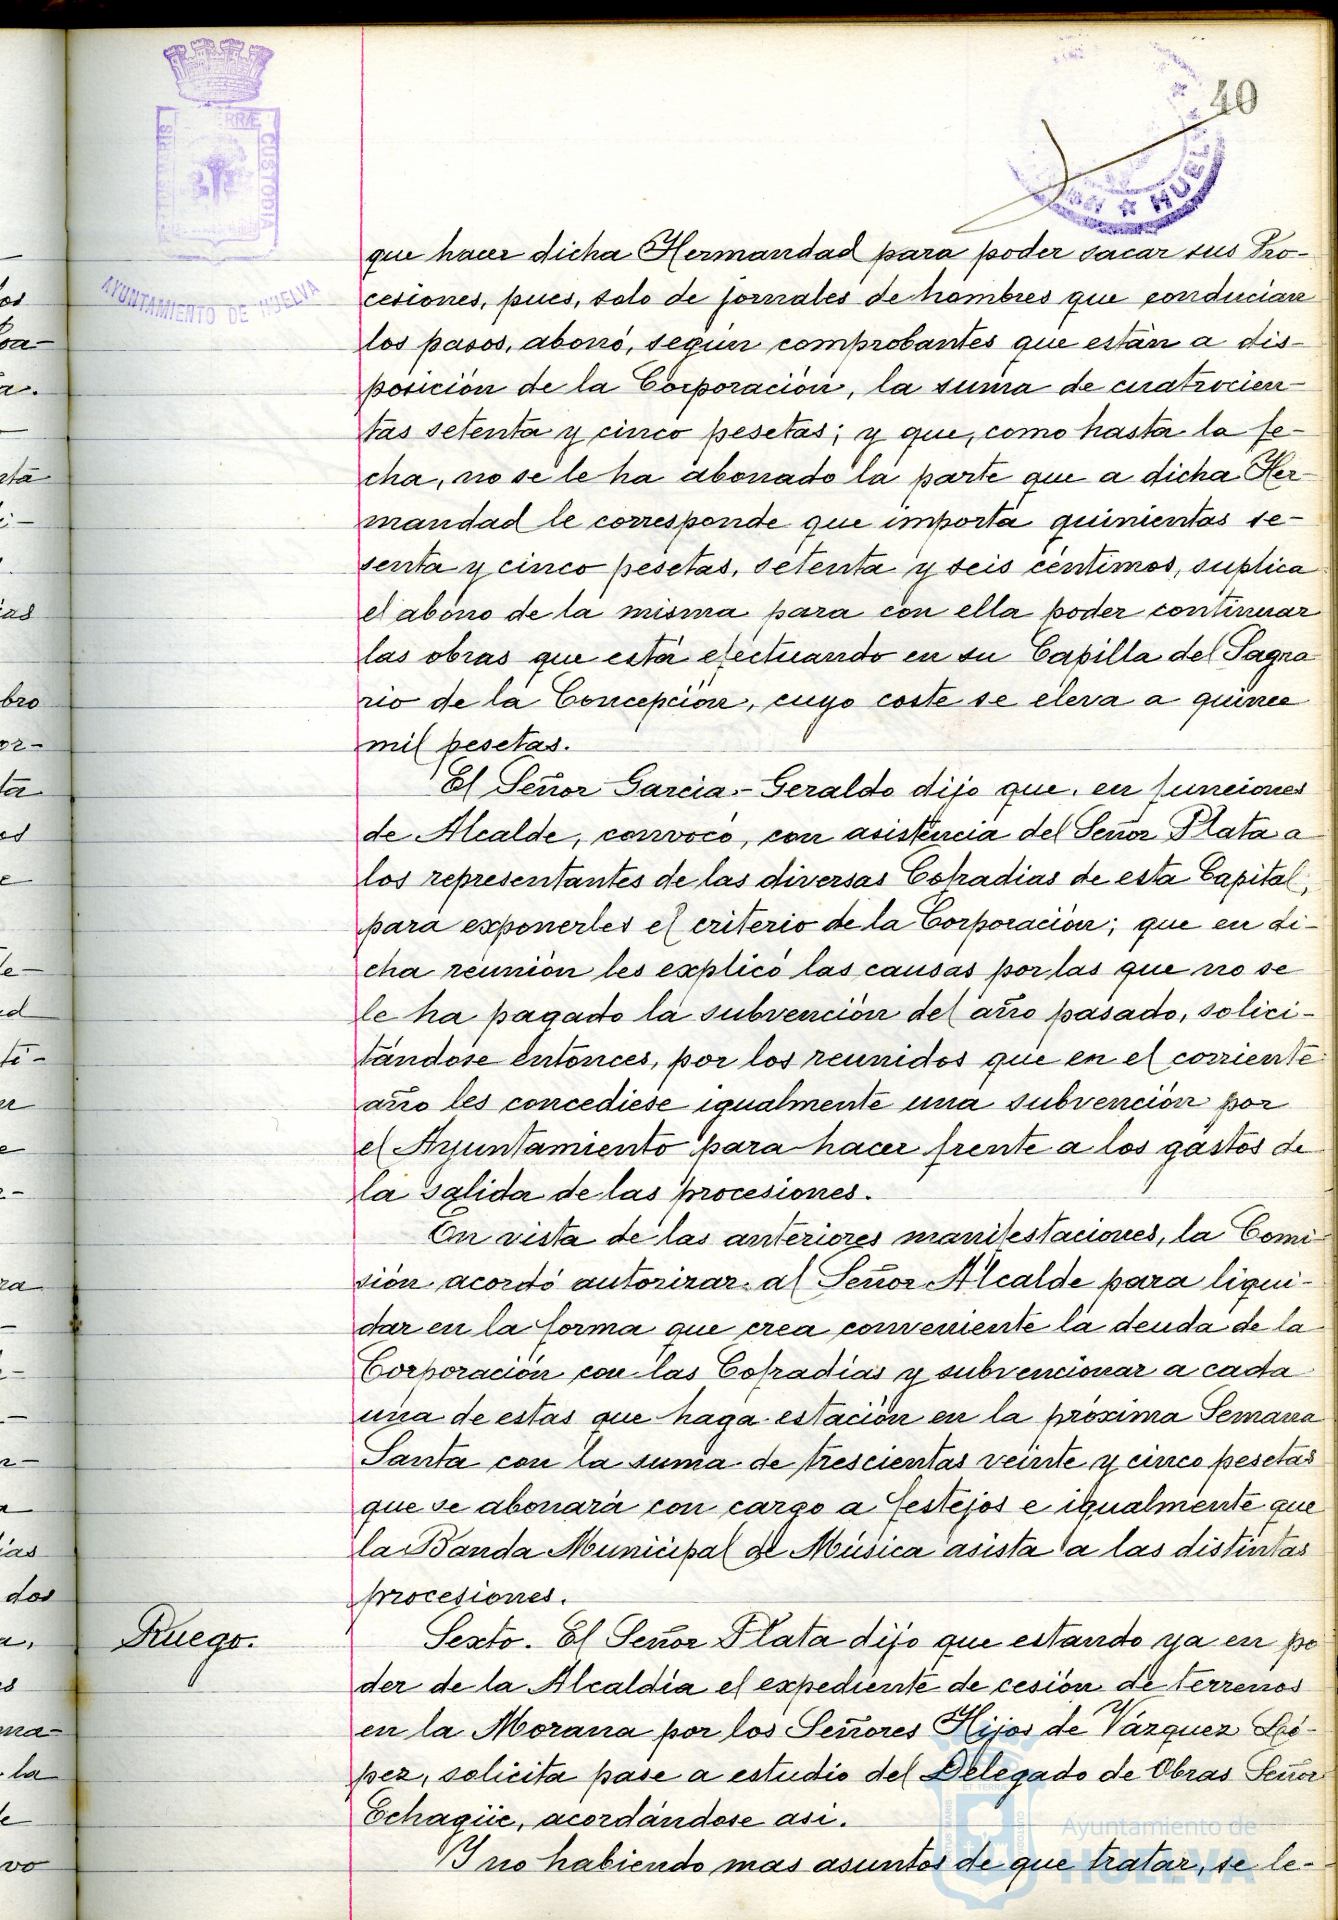 40
AYUNTAMIENTO DE HUELVA
CUSTODIA
HUELVA
que hacer dicha Hermandad para poder sacar sus Pro-
cesiones, pues, solo de jornales de hombres que conducian
los pasos, abonó, según comprobantes que están a dis-
posición de la Corporación, la suma de cuatrocien-
tas setenta y cinco pesetas; y que, como hasta la fe-
cha, no se le ha abonado la parte que a dicha Her-
mandad le corresponde que importa quinientas se-
senta y cinco pesetas, setenta y seis céntimos, suplica
el abono de la misma para con ella poder continuar
las obras que está efectuando en su Capilla del Sagra
rio de la Concepción, cuyo coste se eleva a quince
mil pesetas.
El Señor Garcia-Geraldo dijo que, en funciones
de Alcalde, convocó, con asistencia del Señor Plata a
los representantes de las diversas Cofradias de esta Capital,
para exponerles el criterio de la Corporación; que en di-
cha reunión les explicó las causas por las que no se
le ha pagado la subvención del año pasado, solici-
tándose entonces, por los reunidos que en el corriente
año les concediese igualmente una subvención por
el Ayuntamiento para hacer frente a los gastos de
la salida de las procesiones.
En vista de las anteriores manifestaciones, la Comi-
sión acordó autorizar al Señor Alcalde para liqui-
dar en la forma que crea conveniente la deuda de la
Corporación con las Cofradías y subvencionar a cada
una de estas que haga estación en la próxima Semana
Santa con la suma de trescientas veinte y cinco pesetas
que se abonará con cargo a festejos e igualmente que
la Banda Municipal de Música asista a las distintas
procesiones.
Ruego.
Sexto. El Señor Plata dijo que estando ya en po
der de la Alcaldía el expediente de cesión de terrenos
en la Morana por los Señores Hijos de Vázquez Ló-
pez, solicita pase a estudio del Delegado de Obras Señor
Echagüe, acordándose asi.
Y no habiendo mas asuntos de que tratar, se le-
Ayuntamiento de
HUELVA